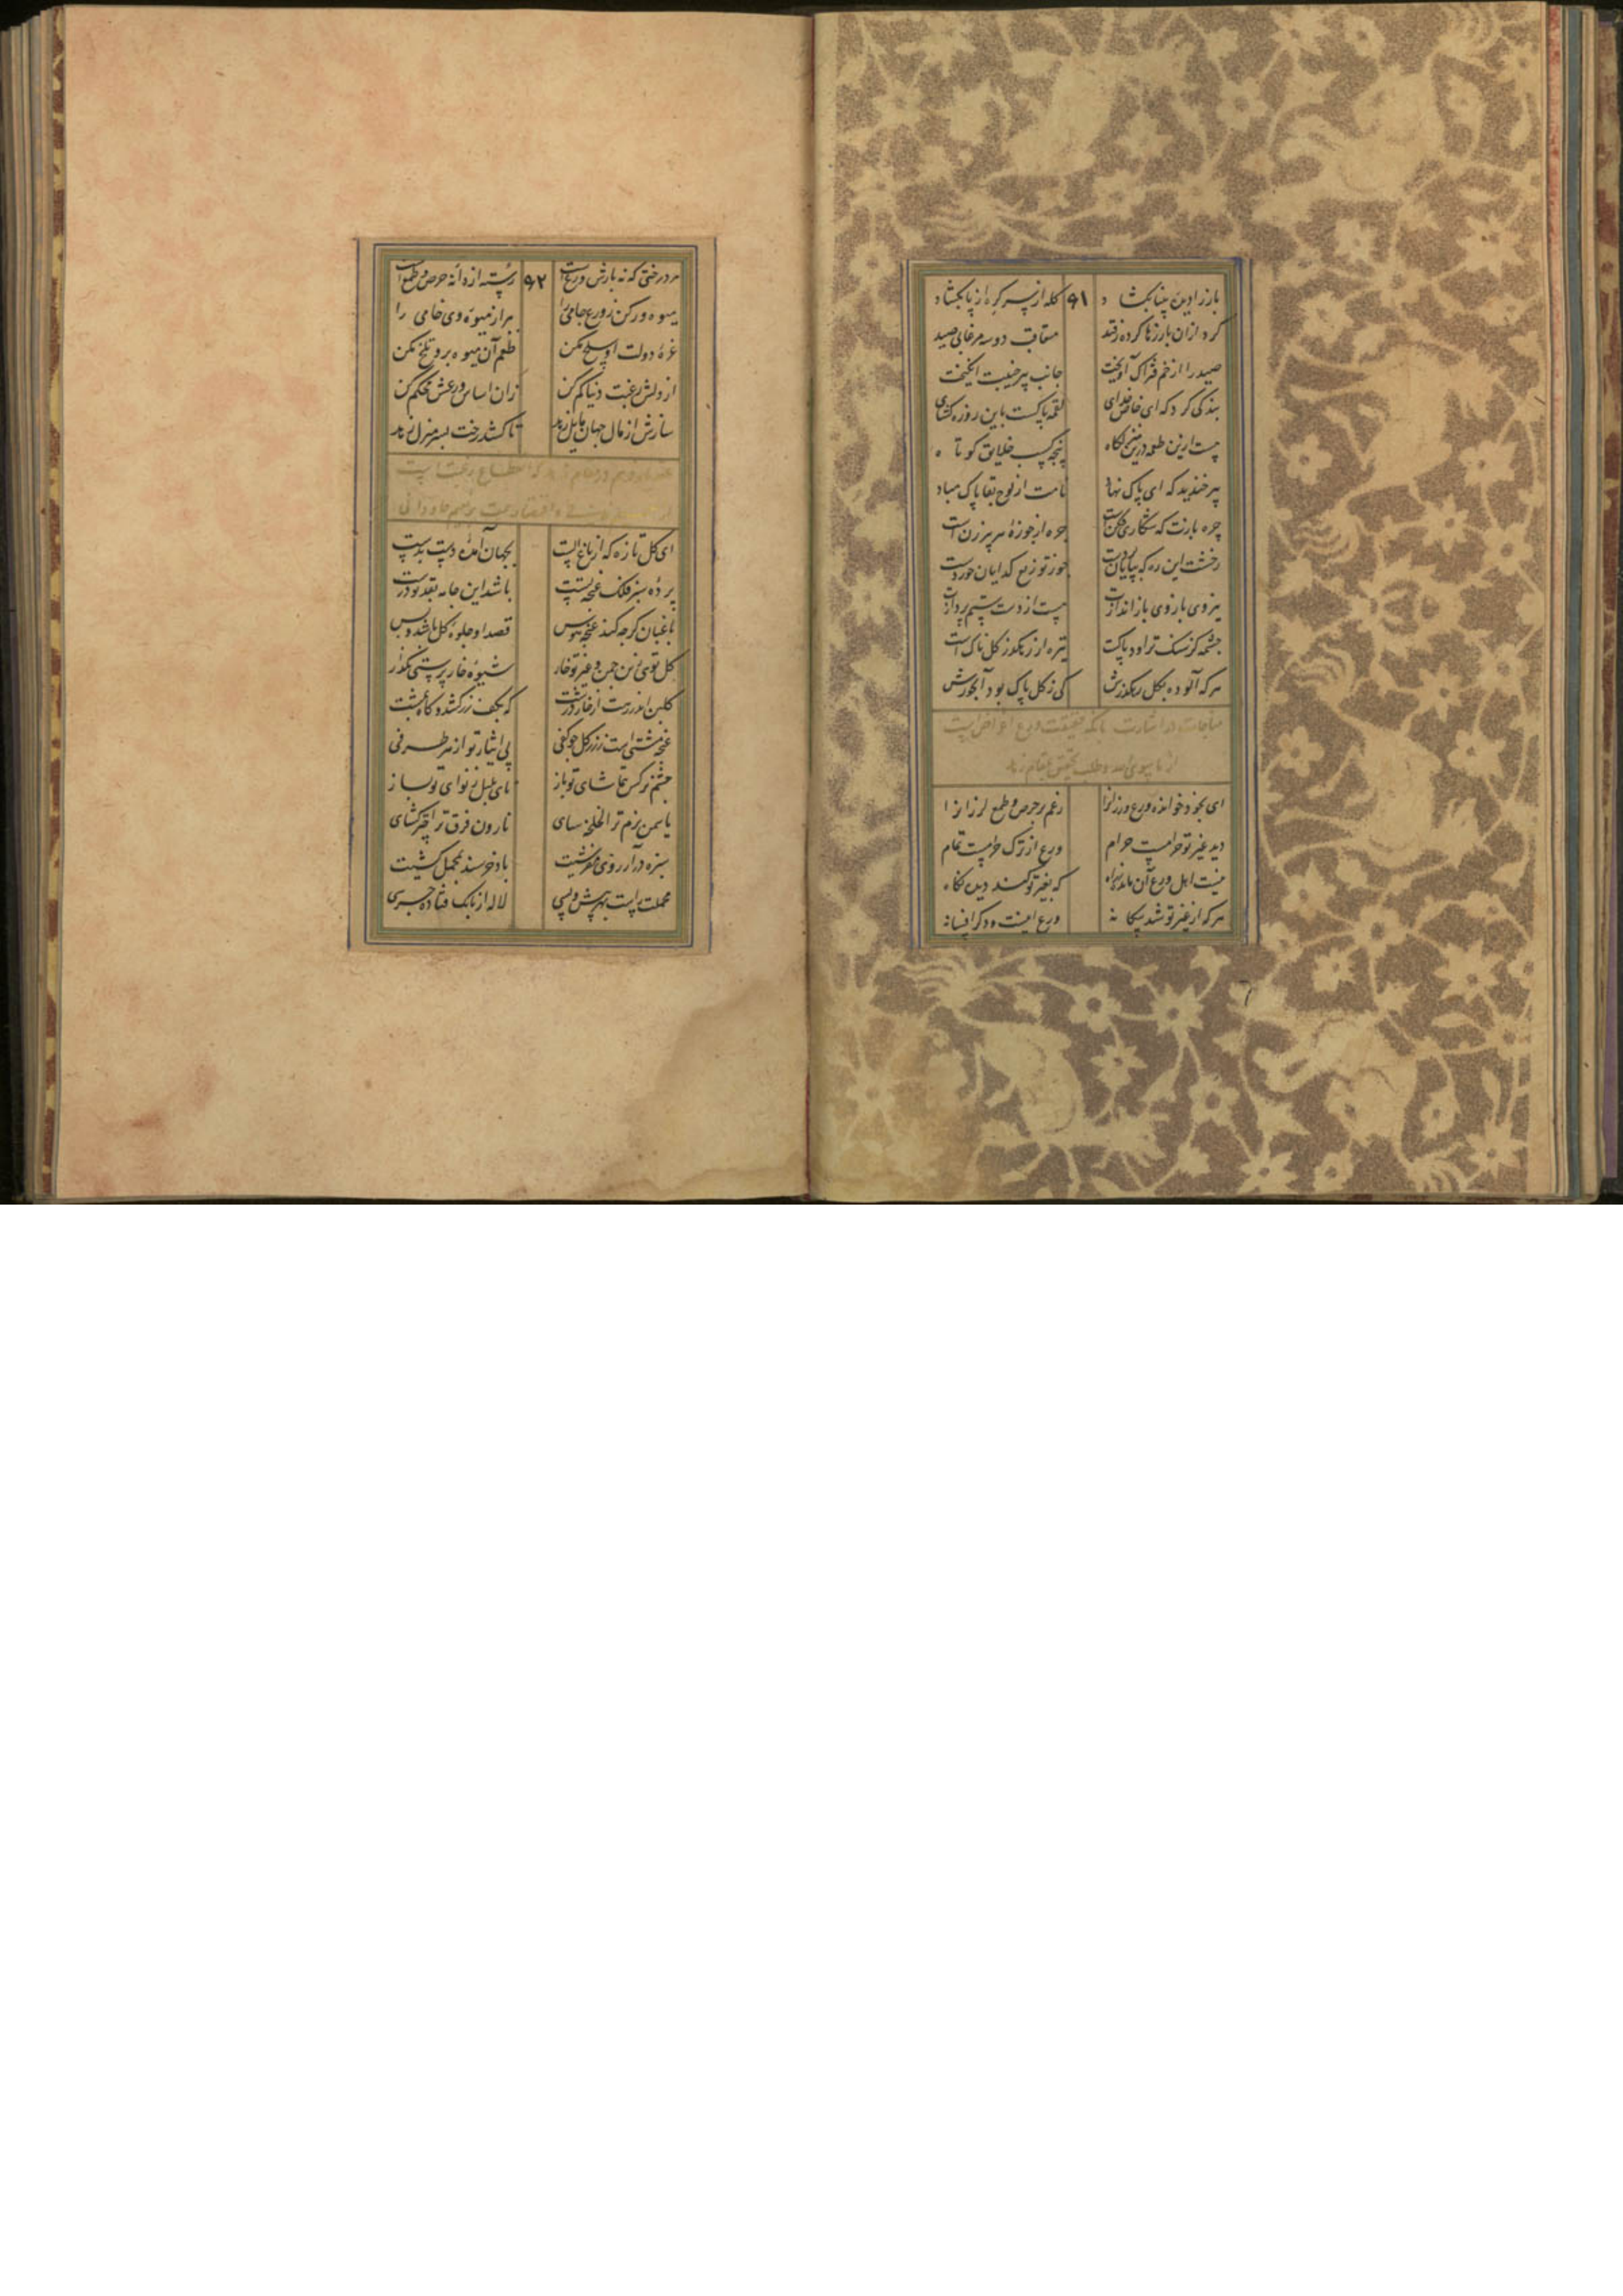 باز را دیدهٔ بینا بگشاد ۶۱ کله از سر گره از پا بگشاد
کرد ازان باز رها کرده ز قید متعاقب دو سه مرغابی صید
صید را از خم فتراک آویخت جانب پیر جنیبت انگیخت
بندگی کرد که ای خاص خدای لقمه پاکست باین روزه گشای
هست ازین طعمه درین منزلگاه پنجه کسب خلایق کوتاه
پیر خندید که ای پاک نهاد نامت از لوح بقا پاک مباد
جره بازت که شکاری فکن است جره از جوزهٔ هر پیرزن است
رخشت این ره که بپایان بردست جو ز توزیع گدایان خوردست
نیروی بازوی باز اندازت هست از دست ستم پردازت
چشمه کز سنگ تراود پاکست تیره از رهگذر گل ناک است
هر که آلوده بگل رهگذرش کی ز گل پاک بود آبخورش
مناجات در اشارت بانکه حقیقت ورع اعراض است
از ماسوی الله و طلب تحقق بمقام زهد
ای بخود خوانده ورع ورزانرا زخم بر حرص و طمع لرزانرا
دید غیر تو حرامست حرام ورع از ترک حرامست تمام
نیست اهل ورع آن مانده براه که بغیر تو کند دیده نگاه
هر که از غیر تو شد بیگانه ورع اینست و دگر افسانه
هر درختی که نه بارش ورع است ۶۲ رسته از دانه حرص و طمع است
میوه ور کن ز ورع جامی را بر از میوهٔ وی خامی را
غرهٔ دولت او سلخ مکن طعم آن میوه برو تلخ مکن
از دلش رغبت دنیا کم کن زان اساس ورعش محکم کن
سازش از مال جهان مایل زهد تا کشد رخت بسر منزل زهد
ای گل تازه که از باغ الست بجهان آمدهٔ دست بدست
پردهٔ سبز فلک غنچهٔ تست باشد این جامه بقد تو درست
باغبان گر چه کند غنچه هوس قصد او جلوهٔ گل باشد و بس
گل توی زین چمن و غیر تو خار شیوهٔ خار پرستی بگذار
غنچه مشتی است ز زر گل چو کفی پی ایثار تو از هر طرفی
چشم نرگس بتماشای تو باز نای بلبل بنوای تو بساز
یاسمن بزم ترا لخلخه سای نارون فرق ترا چتر گشای